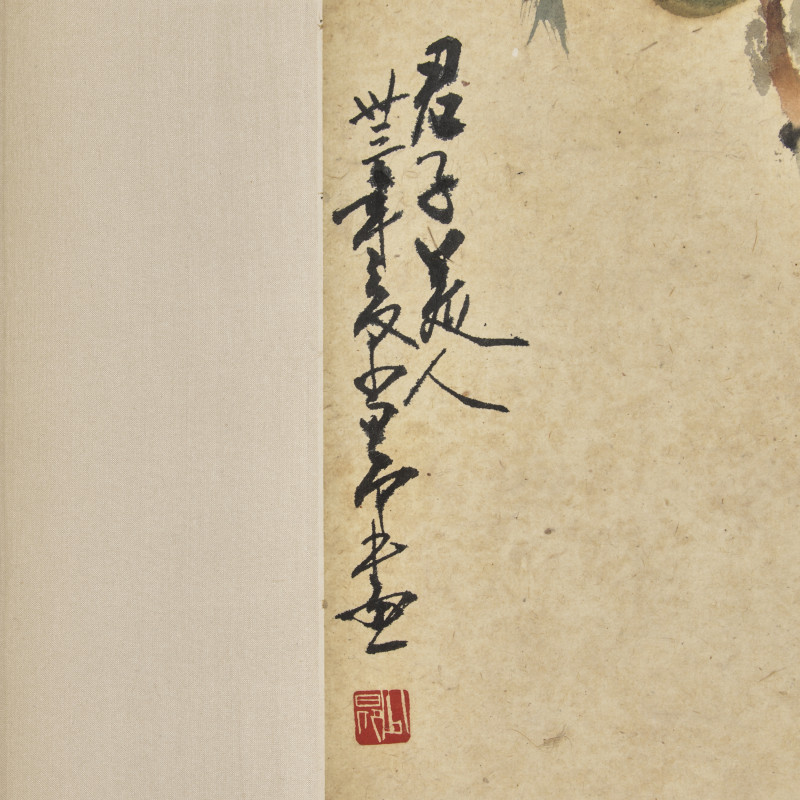 君子美人
卅三年夏少昂畫